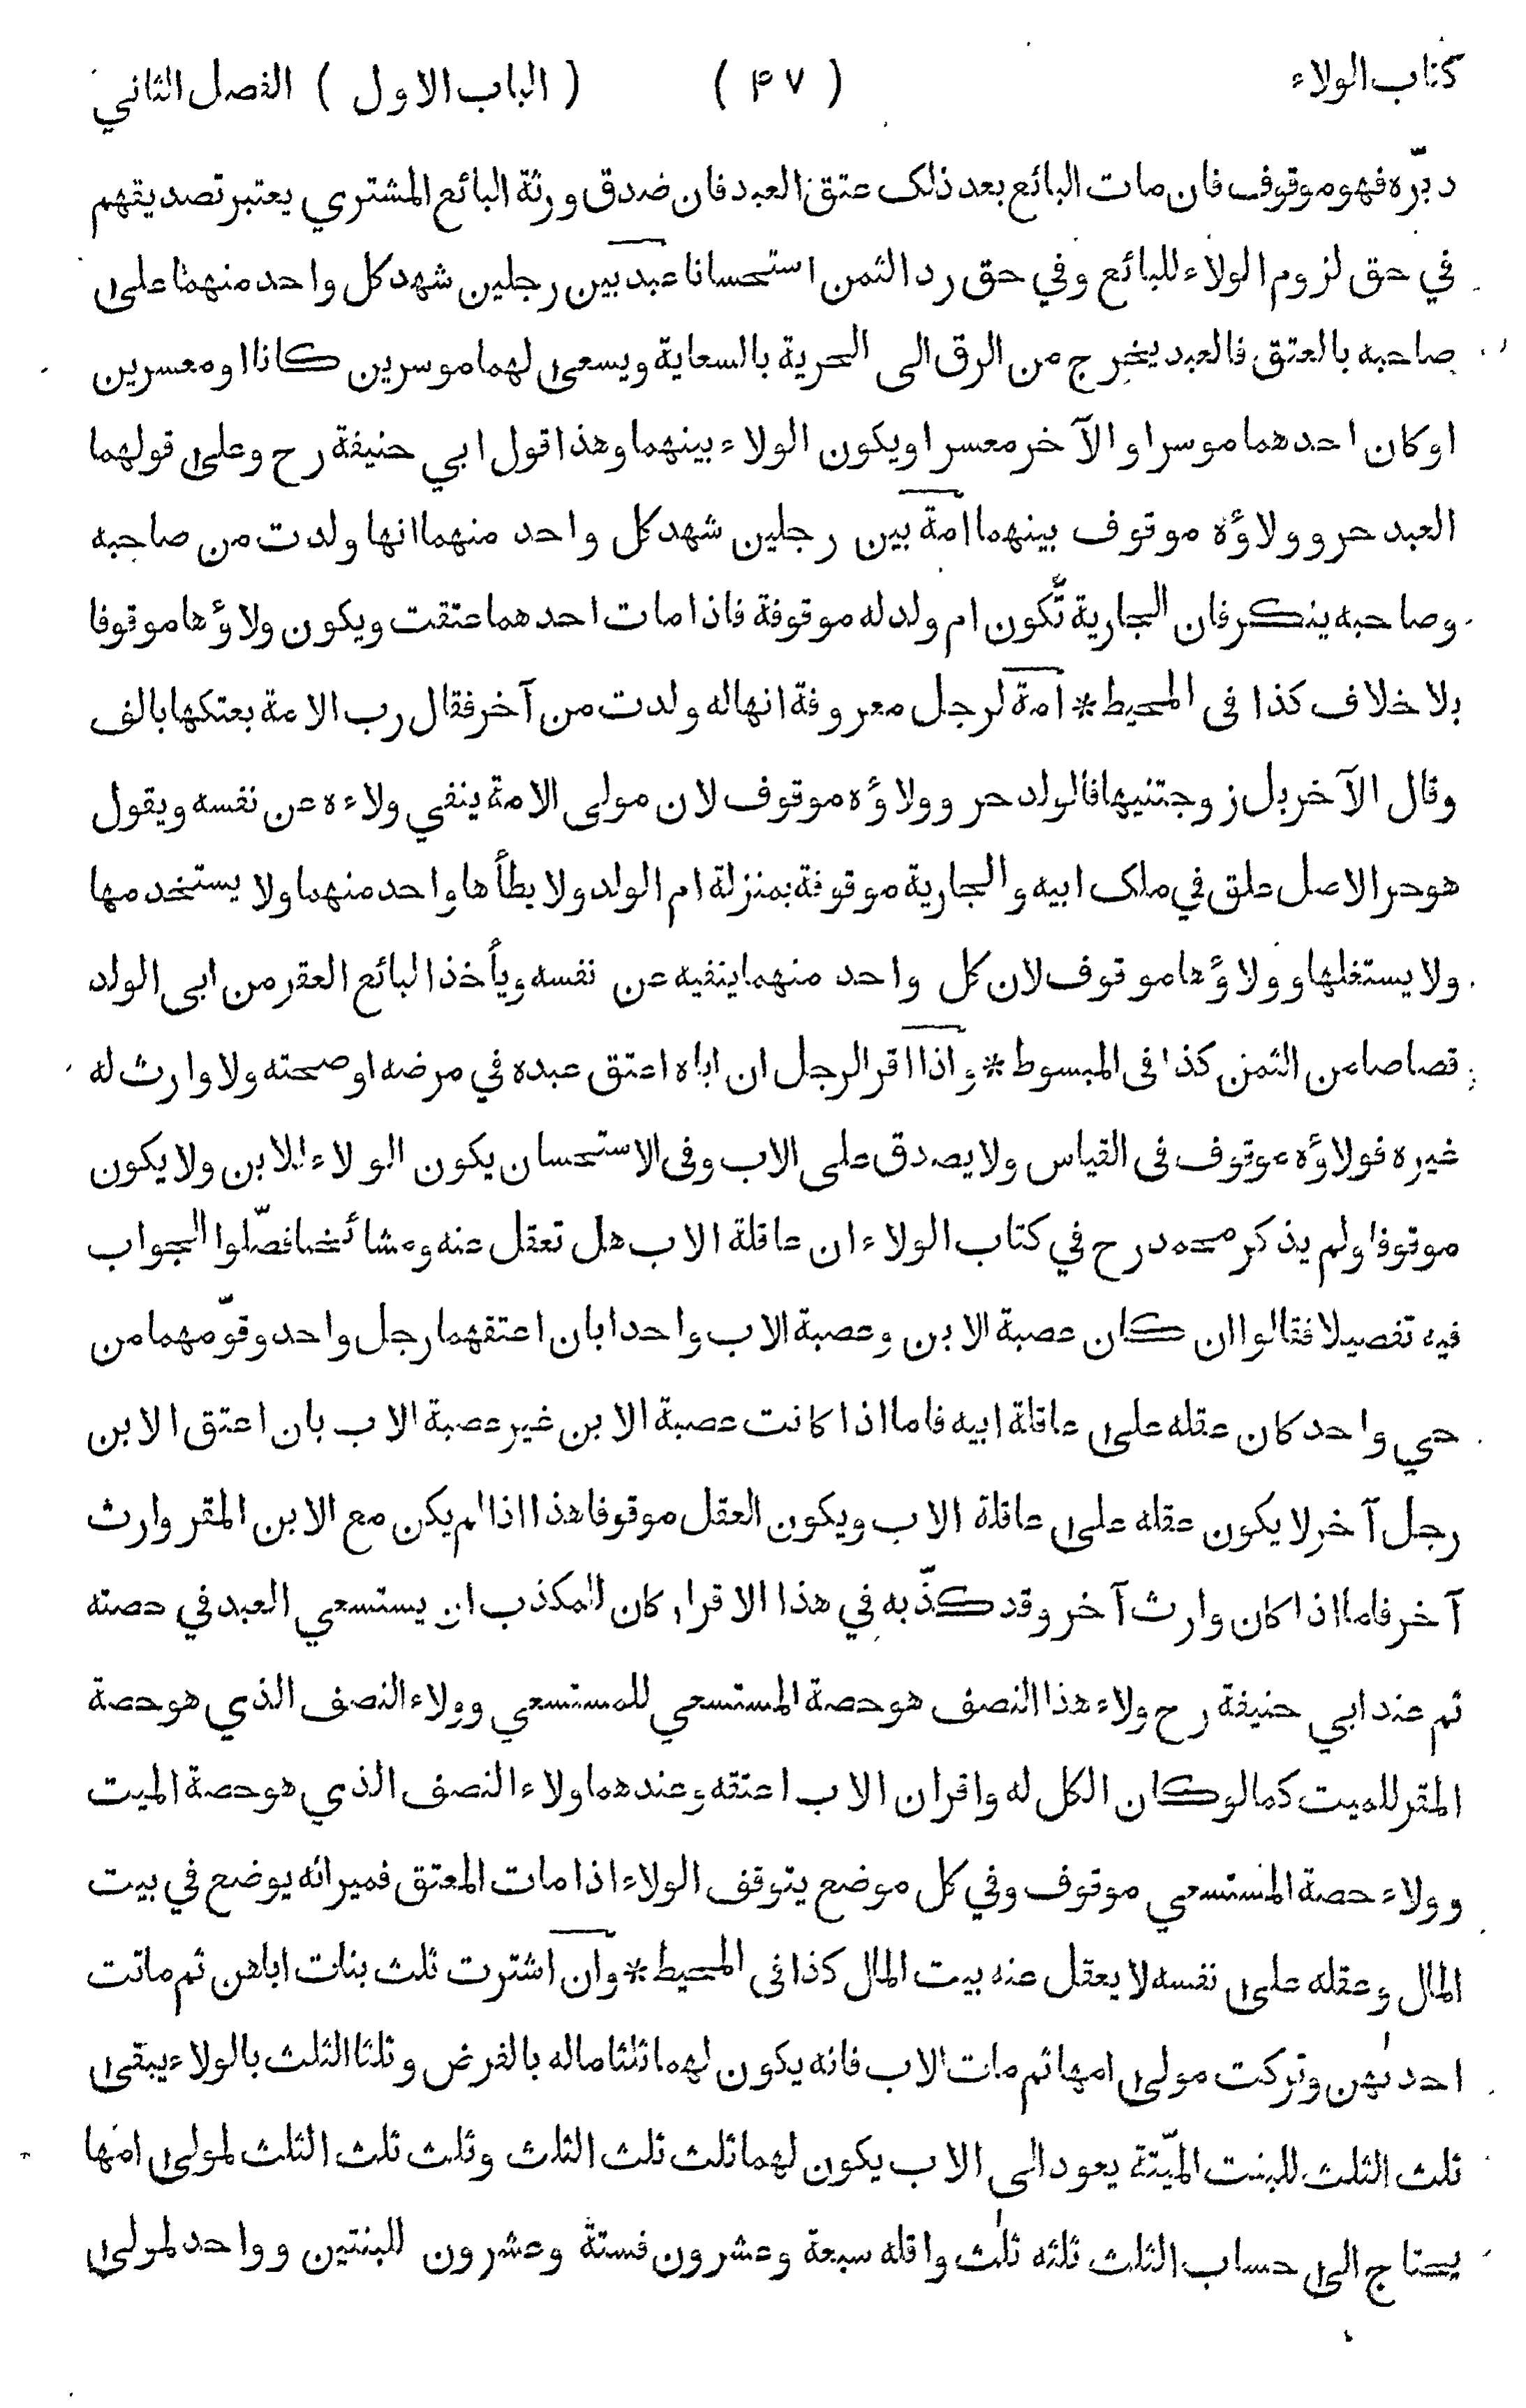 كتاب الولاء ( ۴۷ ) ( الباب الاول ) الفصل الثاني
دبّره فهو موقوف فان مات البائع بعد ذلك عتق العبد فان صدق ورثة البائع المشتري يعتبر تصديقهم
في حق لزوم الولاء للبائع وفي حق رد الثمن استحسانا عبد بين رجلين شهد كل واحد منهما على
صاحبه بالعتق فالعبد يخرج من الرق الى الحرية بالسعاية ويسعى لهما موسرين كانا او معسرين
او كان احدهما موسرا والآخر معسرا ويكون الولاء بينهما وهذا قول ابي حنيفة رح وعلى قولهما
العبد حر وولاؤه موقوف بينهما امة بين رجلين شهد كل واحد منهما انها ولدت من صاحبه
وصاحبه ينكر فان الجارية تكون ام ولد له موقوفة فاذا مات احدهما عتقت ويكون ولاؤها موقوفا
بلا خلاف كذا فى المحيط * امة لرجل معروفة انها له ولدت من آخر فقال رب الامة بعتكها بالف
وقال الآخر بل زوجتنيها فالولد حر وولاؤه موقوف لان مولى الامة ينفي ولاءه عن نفسه ويقول
هو حر الاصل علق في ملك ابيه والجارية موقوفة بمنزلة ام الولد ولا يطأها واحد منهما ولا يستخدمها
ولا يستغلها وولاؤها موقوف لان كل واحد منهما ينفيه عن نفسه ويأخذ البائع العقر من ابى الولد
قصاصا من الثمن كذا فى المبسوط * واذا اقر الرجل ان اباه اعتق عبده في مرضه او صحته ولا وارث له
غيره فولاؤه موقوف فى القياس ولا يصدق على الاب وفى الاستحسان يكون الولاء للابن ولا يكون
موقوفا ولم يذكر محمد رح في كتاب الولاء ان عاقلة الاب هل تعقل عنه ومشائخنا فصّلوا الجواب
فيه تفصيلا فقالوا ان كان عصبة الابن وعصبة الاب واحدا بان اعتقهما رجل واحد وقوّمهما من
حي واحد كان عقله على عاقلة ابيه فاما اذا كانت عصبة الابن غير عصبة الاب بان اعتق الابن
رجل آخر لا يكون عقله على عاقلة الاب ويكون العقل موقوفا هذا اذا لم يكن مع الابن المقر وارث
آخر فاما اذا كان وارث آخر وقد كذّبه في هذا الاقرار كان للمكذب ان يستسعي العبد في حصته
ثم عند ابي حنيفة رح ولاء هذا النصف هو حصة المستسعي للمستسعي وولاء النصف الذي هو حصة
المقر للميت كما لو كان الكل له واقر ان الاب اعتقه وعندهما ولاء النصف الذي هو حصة الميت
وولاء حصة المستسعي موقوف وفي كل موضع يتوقف الولاء اذا مات المعتق فميراثه يوضع في بيت
المال وعقله على نفسه لا يعقل عنه بيت المال كذا فى المحيط * وان اشترت ثلث بنات اباهن ثم ماتت
احدٰىهن وتركت مولى امها ثم مات الاب فانه يكون لهما ثلثا ماله بالفرض وثلثا الثلث بالولاء يبقى
ثلث الثلث للبنت الميّتة يعود الى الاب يكون لهما ثلث ثلث الثلث وثلث ثلث الثلث لمولى امها
يحتاج الى حساب الثلث ثلثه ثلٰث واقله سبعة وعشرون فستة وعشرون للبنتين وواحد لمولى